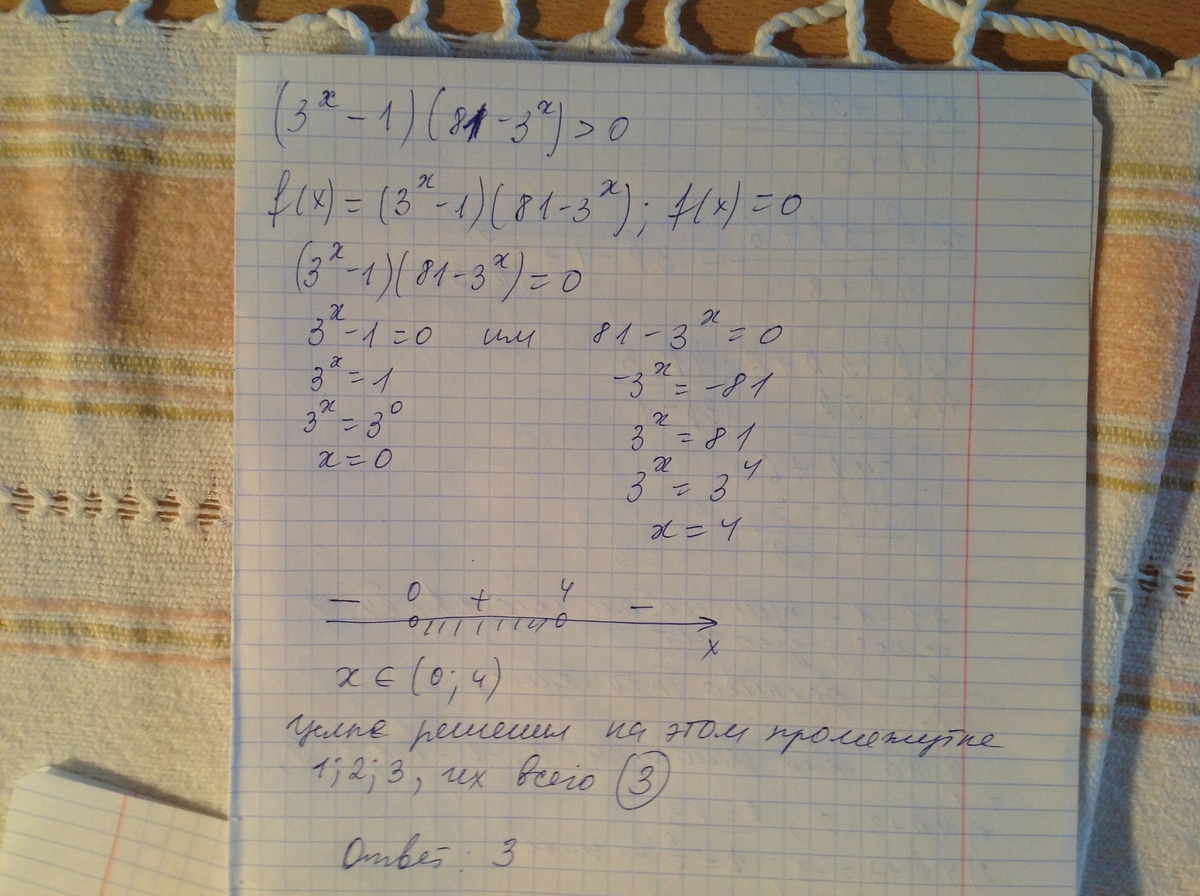 (3^x - 1)(81 - 3^x) > 0
f(x) = (3^x - 1)(81 - 3^x); f(x) = 0
(3^x - 1)(81 - 3^x) = 0
3^x - 1 = 0 или 81 - 3^x = 0
3^x = 1 -3^x = -81
3^x = 3^0 3^x = 81
x = 0 3^x = 3^4
x = 4
− 0 + 4 −
x
x ∈ (0; 4)
целые решения на этом промежутке
1; 2; 3, их всего 3
Ответ: 3